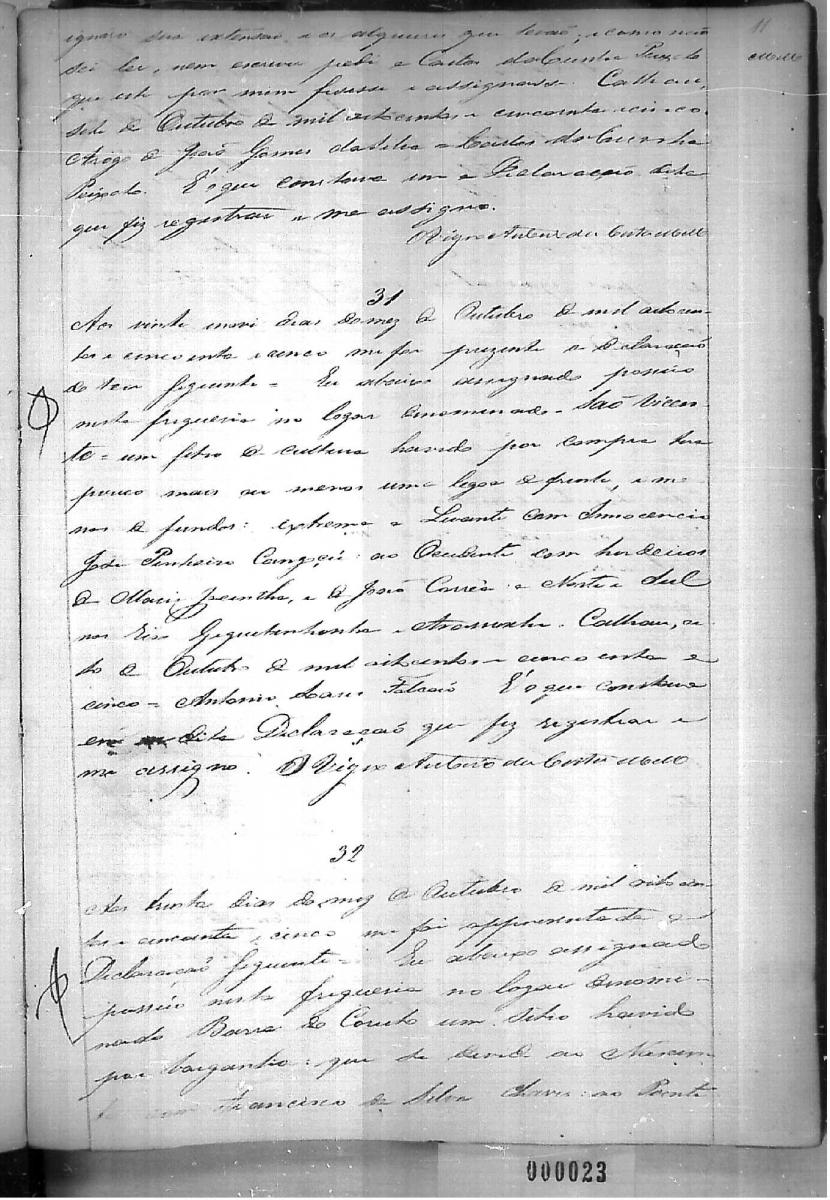 11
Mello
ignoro sua extensão, e os alqueires que terão; e como não
sei ler, nem escrever pedi a Carlos da Cunha Peixoto
que este por mim fizesse e assignasse. Calhau,
sete de Outubro de mil oitocentos e cincoenta e cinco.
Arogo de João Gomes da Silva = Carlos da Cunha
Peixoto. É o que constava em a Declaração dita
que fiz registrar e me assigno.
O Vigrº Antero da Costa Mello
31
Aos vinte e nove dias do mez de Outubro de mil oitocen-
tos e cincoenta e cinco me foi prezente a Declaração
do teor seguinte = Eu abaixo assignado possúo
nesta freguesia no logar denominado = São Vicen-
te = um sitio de cultura havido por compra terá
pouco mais ou menos uma legoa de frente, e me-
nos de fundos: extrema a Levante com Innocencio
José Pinheiro Cangaçú: ao Occidente com herdeiros
de Maria Jacintha, e de João Corrêa: a Norte e Sul
nos Rios Gequitinhonha e Arassuahi. Calhau, oi-
to de Outubro de mil oitocentos e cincoenta e
cinco = Antonio Falcão É o que constava
em a dita Declaração que fiz registrar e
me assigno. O Vigrº Antero da Costa Mello
32
Aos trinta dias do mez de Outubro de mil oitocen-
tos e cincoenta e cinco me foi appresentada a
Declaração seguinte = Eu abaixo assignado
possúo nesta freguesia no logar denomi-
nado Barra do Coruto um sitio havido
por barganha: que se divide ao Nascen-
te com Francisco da Silva Chaves: ao Poente
000023